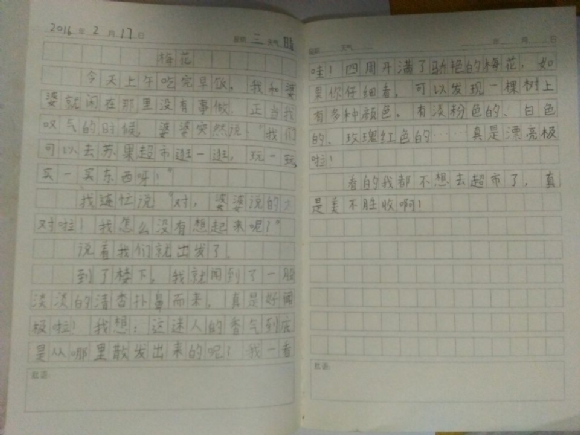 2016年2月17日 星期三 天气 晴
梅花
今天上午吃完早饭，我和婆
婆就闲在那里没有事做，正当我
叹气的时候，婆婆突然说："我们
可以去苏果超市逛一逛，玩一玩，
买一买东西呀！"
我连忙说"对，婆婆说的
对啦！我怎么没有想起来呢？"
说着我们就出发了。
到了楼下，我就闻到了一股
淡淡的清香扑鼻而来，真是好闻
极啦！我想：这迷人的香气到底
是从哪里散发出来的呢？我一看
批语：
哇！四周开满了艳的梅花，如
果你仔细看，可以发现一棵树上
有多种颜色。有淡粉色的、白色
的、玫瑰红色的……真是漂亮极
啦！
看的我都不想去超市了，真
是美不胜收啊！
批语：